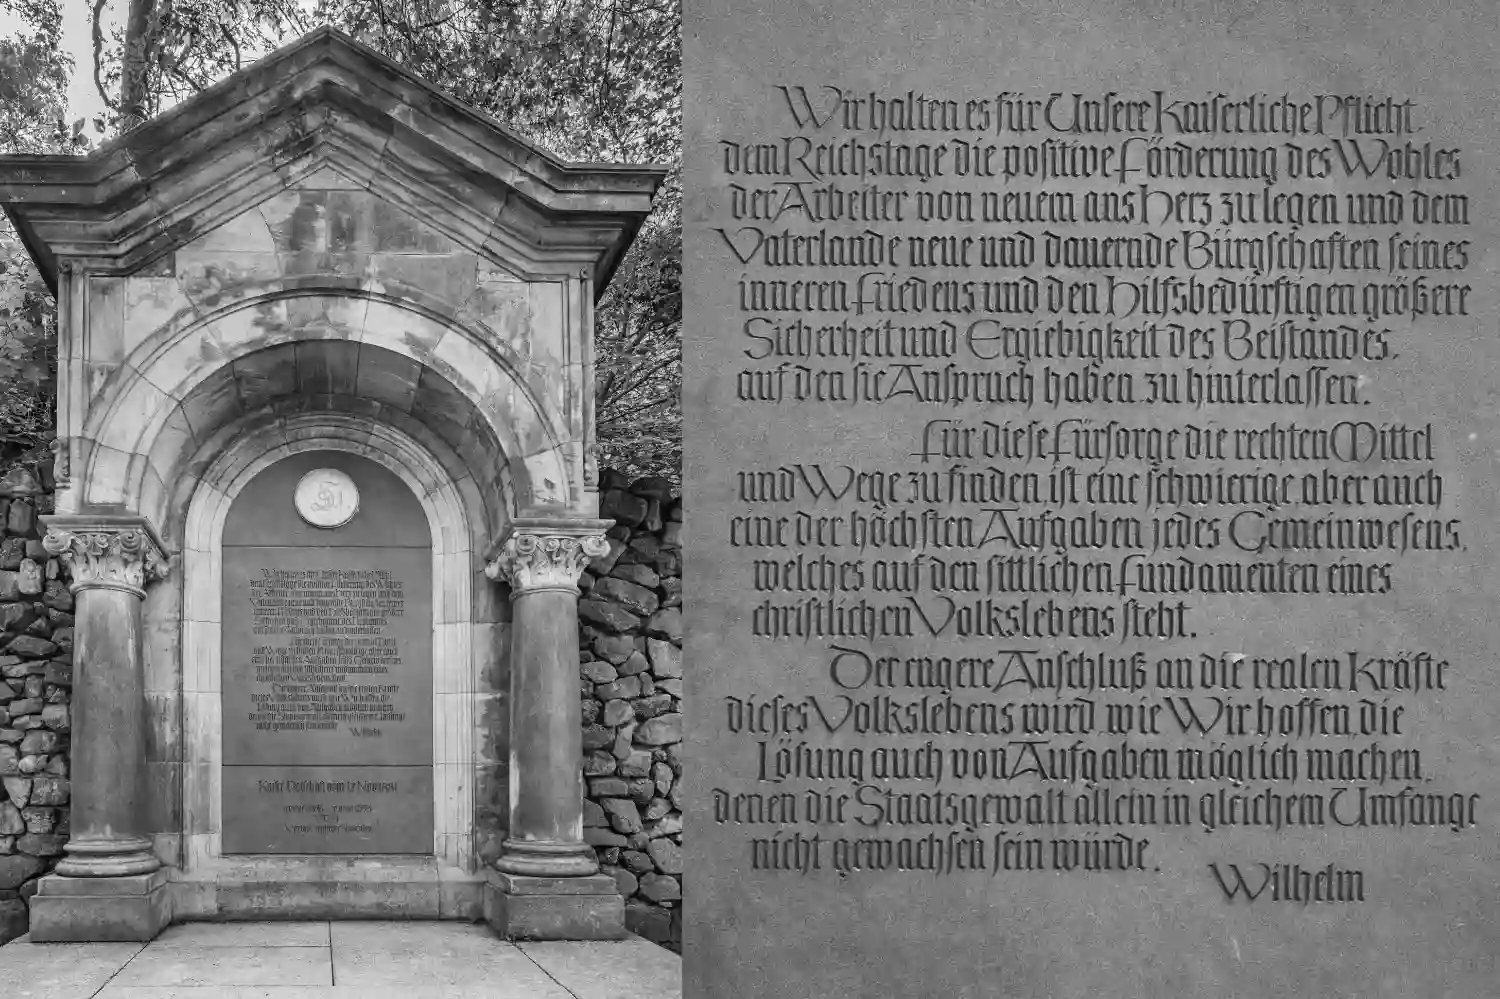 Wir halten es für Unsere Kaiserliche Pflicht,
dem Reichstage die positive Förderung des Wohles
der Arbeiter von neuem ans Herz zu legen und dem
Vaterlande neue und dauernde Bürgschaften seines
inneren Friedens und den Hilfsbedürftigen größere
Sicherheit und Ergiebigkeit des Beistandes,
auf den sie Anspruch haben, zu hinterlassen.
Für diese Fürsorge die rechten Mittel
und Wege zu finden, ist eine schwierige, aber auch
eine der höchsten Aufgaben jedes Gemeinwesens,
welches auf den sittlichen Fundamenten eines
christlichen Volkslebens steht.
Der engere Anschluß an die realen Kräfte
dieses Volkslebens wird, wie Wir hoffen, die
Lösung auch von Aufgaben möglich machen,
denen die Staatsgewalt allein in gleichem Umfange
nicht gewachsen sein würde.
Wilhelm